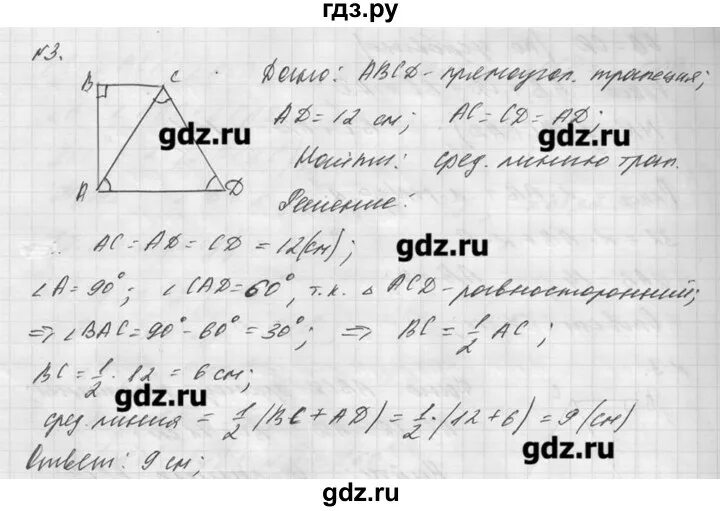 гдз.ру
№3.
B C
A D
Дано: ABCD - прямоугол. трапеция;
AD = 12 см; AC = CD = AD;
gdz.ru gdz.ru
Найти: сред. линию трап.
Решение:
AC = AD = CD = 12 (см);
gdz.ru
∠A = 90°; ∠CAD = 60°, т.к. △ ACD - равносторонний;
⇒ ∠BAC = 90° - 60° = 30°; ⇒ BC = 1/2 AC;
BC = 1/2 · 12 = 6 см;
gdz.ru
сред. линия = 1/2 (BC + AD) = 1/2 · (12 + 6) = 9 (см)
gdz.ru
Ответ: 9 см;
gdz.ru